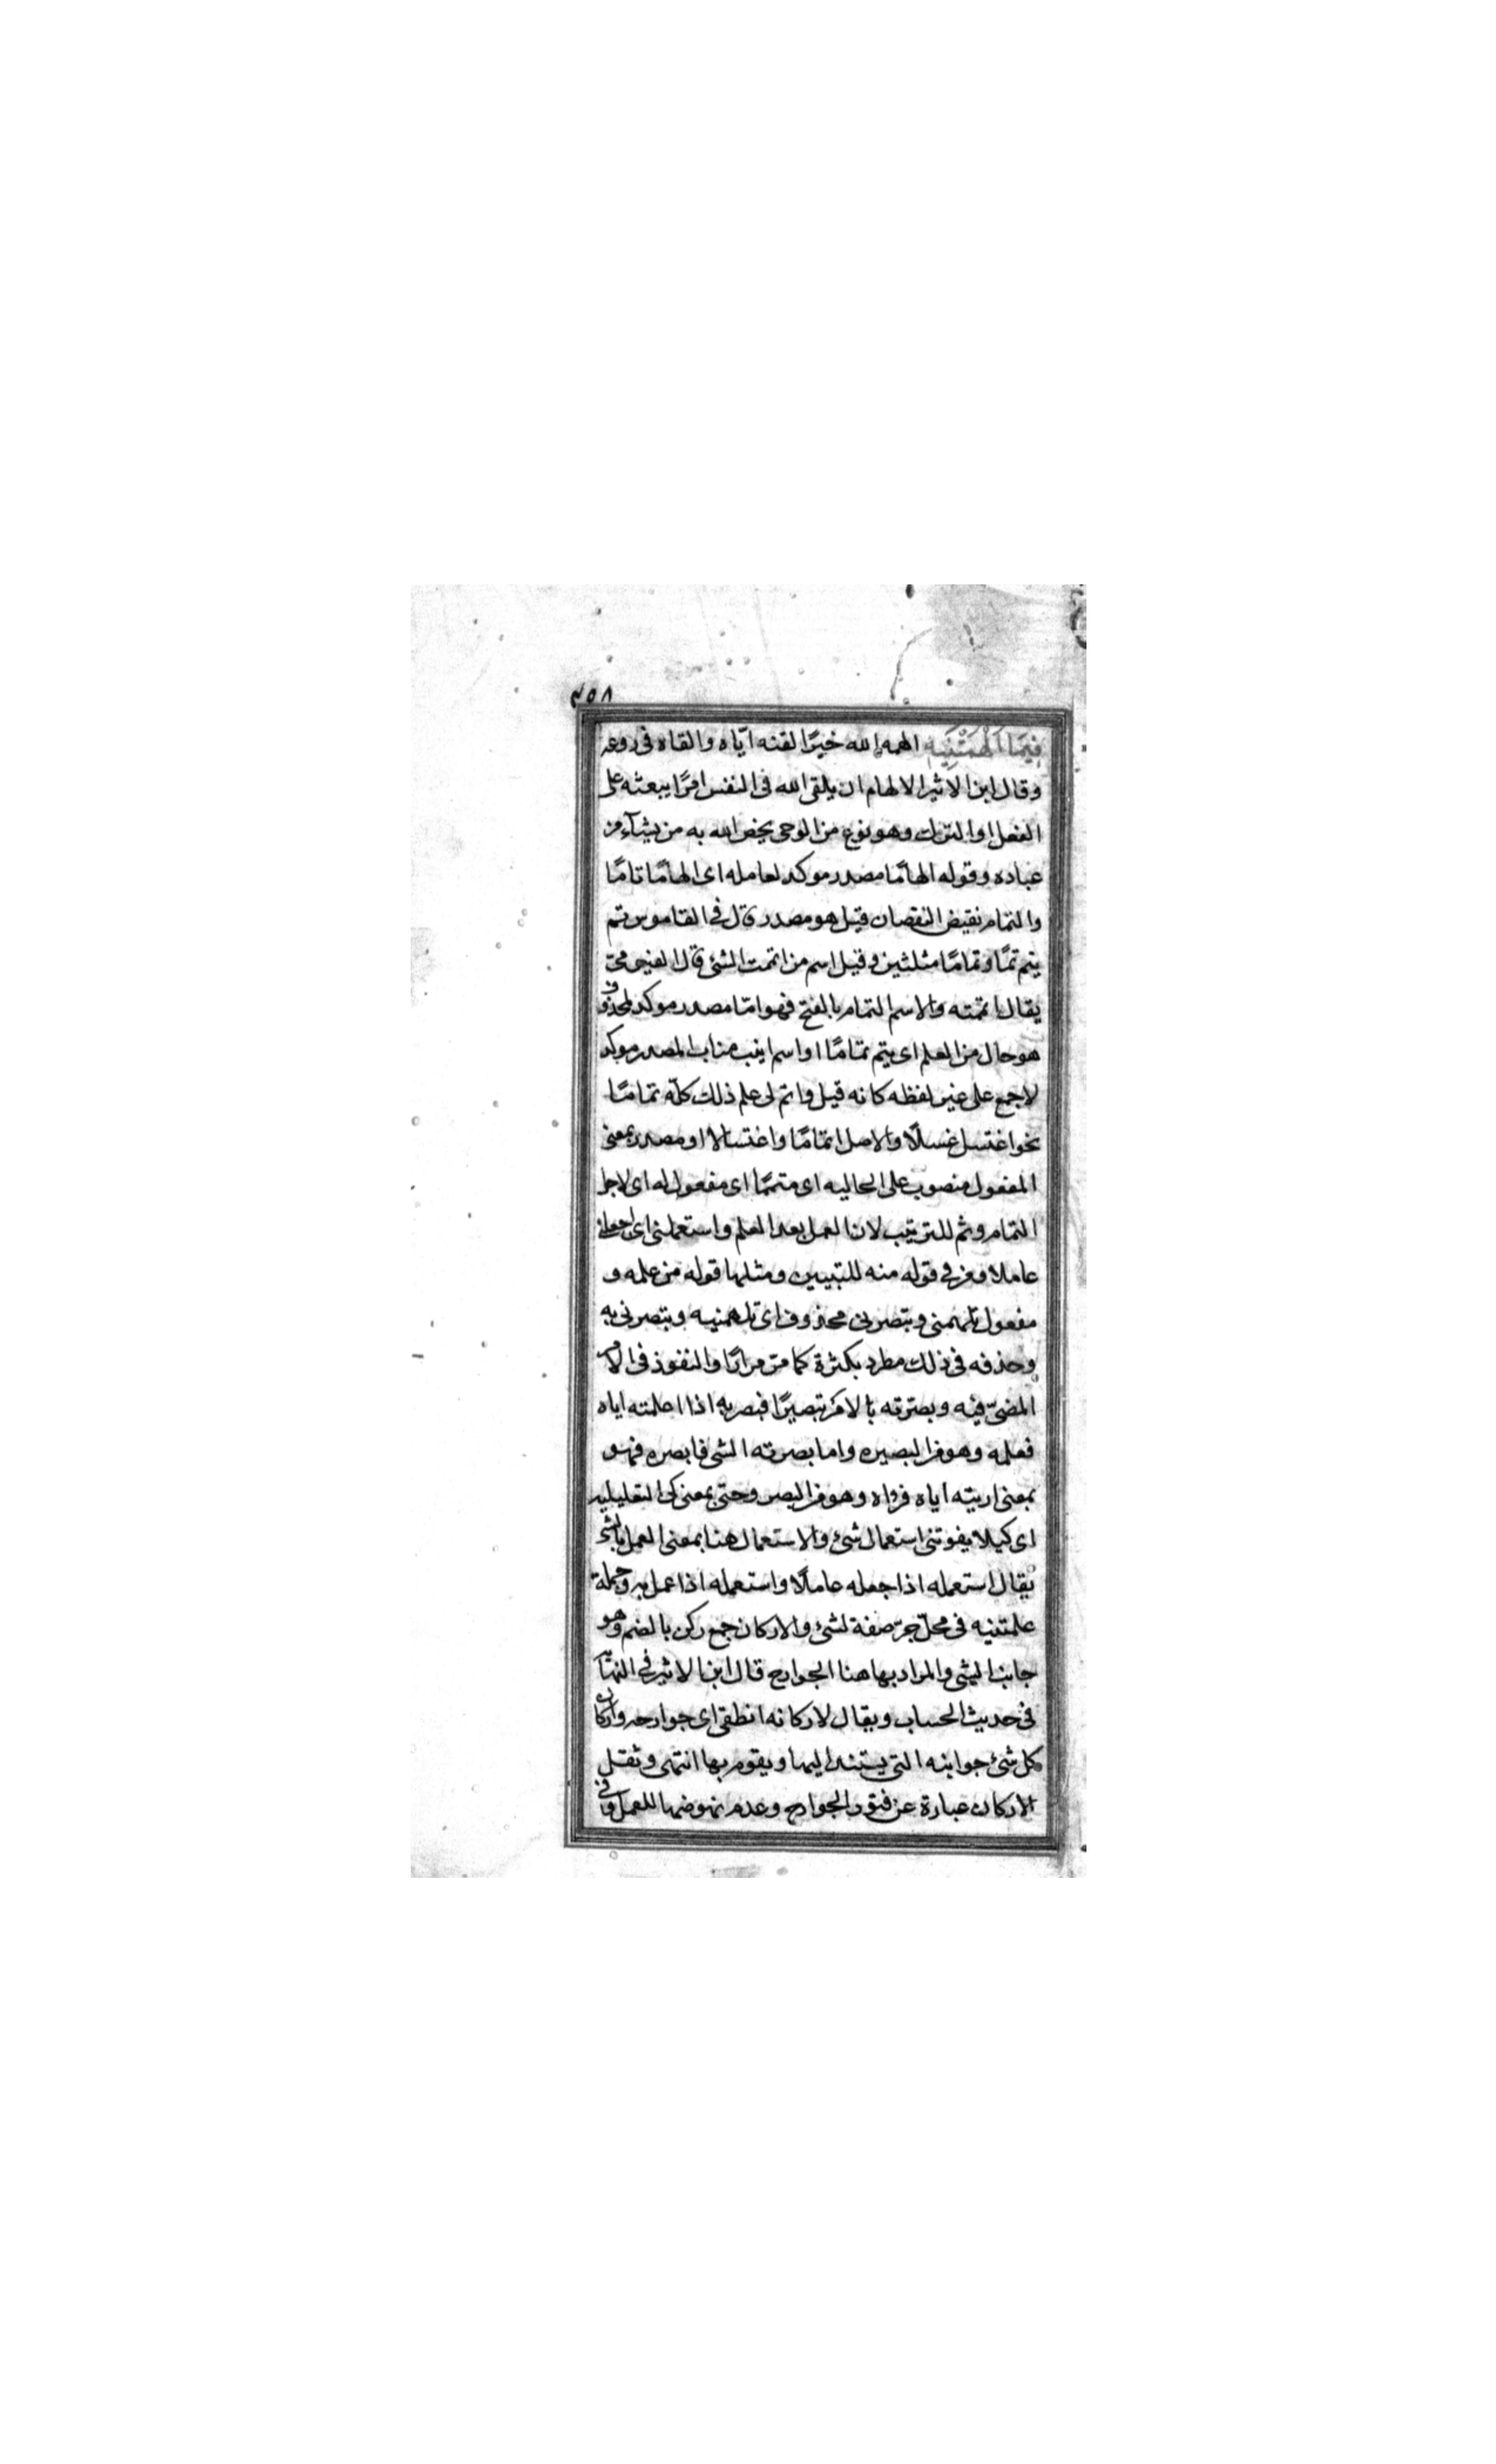 ٣٥٨
فِيمَا اَلْهَمْتَنِيهِ الهمه الله خيرًا لقنه ايّاه والقاه فى روعه
وقال ابن الاثير الالهام ان يلقى الله فى النفس امرًا يبعثه على
الفعل او الترك وهو نوع من الوحى يخص الله به من يشآء من
عباده وقوله الهامًا مصدر موكد لعامله اى الهامًا تامًا
والتمام نقيض النقصان قيل هو مصدر قال فى القاموس تم
يتم تمًا وتمامًا مثلثين وقيل اسم من اتممت الشئ قال الفيومىّ
يقال اتممته والاسم التمام بالفتح فهو امّا مصدر موكد لمحذوف
هو حال من العلم اى يتم تمامًا او اسم ينب مناب المصدر موكد
لاجمع على غير لفظه كانه قيل واتم لى علم ذلك كلّه تمامًا
نحو اغتسل غسلًا والاصل اتمامًا واغتسالا او مصدر بمعنى
المفعول منصوب على الحاليه اى متممًا اى مفعول له اى لاجل
التمام وثم للترتيب لان العمل بعد العلم واستعملنى اى اجعلنى
عاملا ومن فى قوله منه للتبيين ومثلها قوله من علمه و
مفعول تلهمنى وتبصرنى محذوف اى تلهمنيه وتبصرنى به
وحذفه فى ذلك مطرد بكثرة كما مرّ مرارًا والنفوذ فى الامر
المضىّ فيه وبصّرته بالامر تبصيرًا فبصر به اذا اعلمته اياه
فعلمه وهو من البصيره واما بصرته الشى فابصره فهو
بمعنى اريته اياه فراه وهو من البصر وحتى بمعنى كى التعليليه
اى كيلا يفوتنى استعمال شئ والاستعمال هنا بمعنى العمل بالشئ
يقال استعمله اذا جعله عاملًا واستعمله اذا عمل به وجملة
علمتنيه فى محلّ جرّ صفة لشئ والاركان جمع ركن بالضم وهو
جانب الشى والمراد بها هنا الجوارح قال ابن الاثير فى النهاية
فى حديث الحساب ويقال لاركانه انطقى اى جوارحه واركان
كل شئ جوانبه التى يستند اليها ويقوم بها انتهى وثقل
الاركان عبارة عن فتور الجوارح وعدم نهوضها للعمل وفى